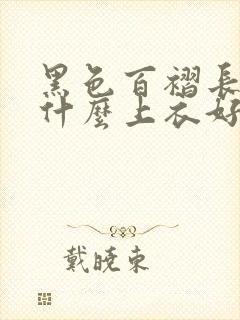 黑色百褶長
什麼上衣好
戴曉東